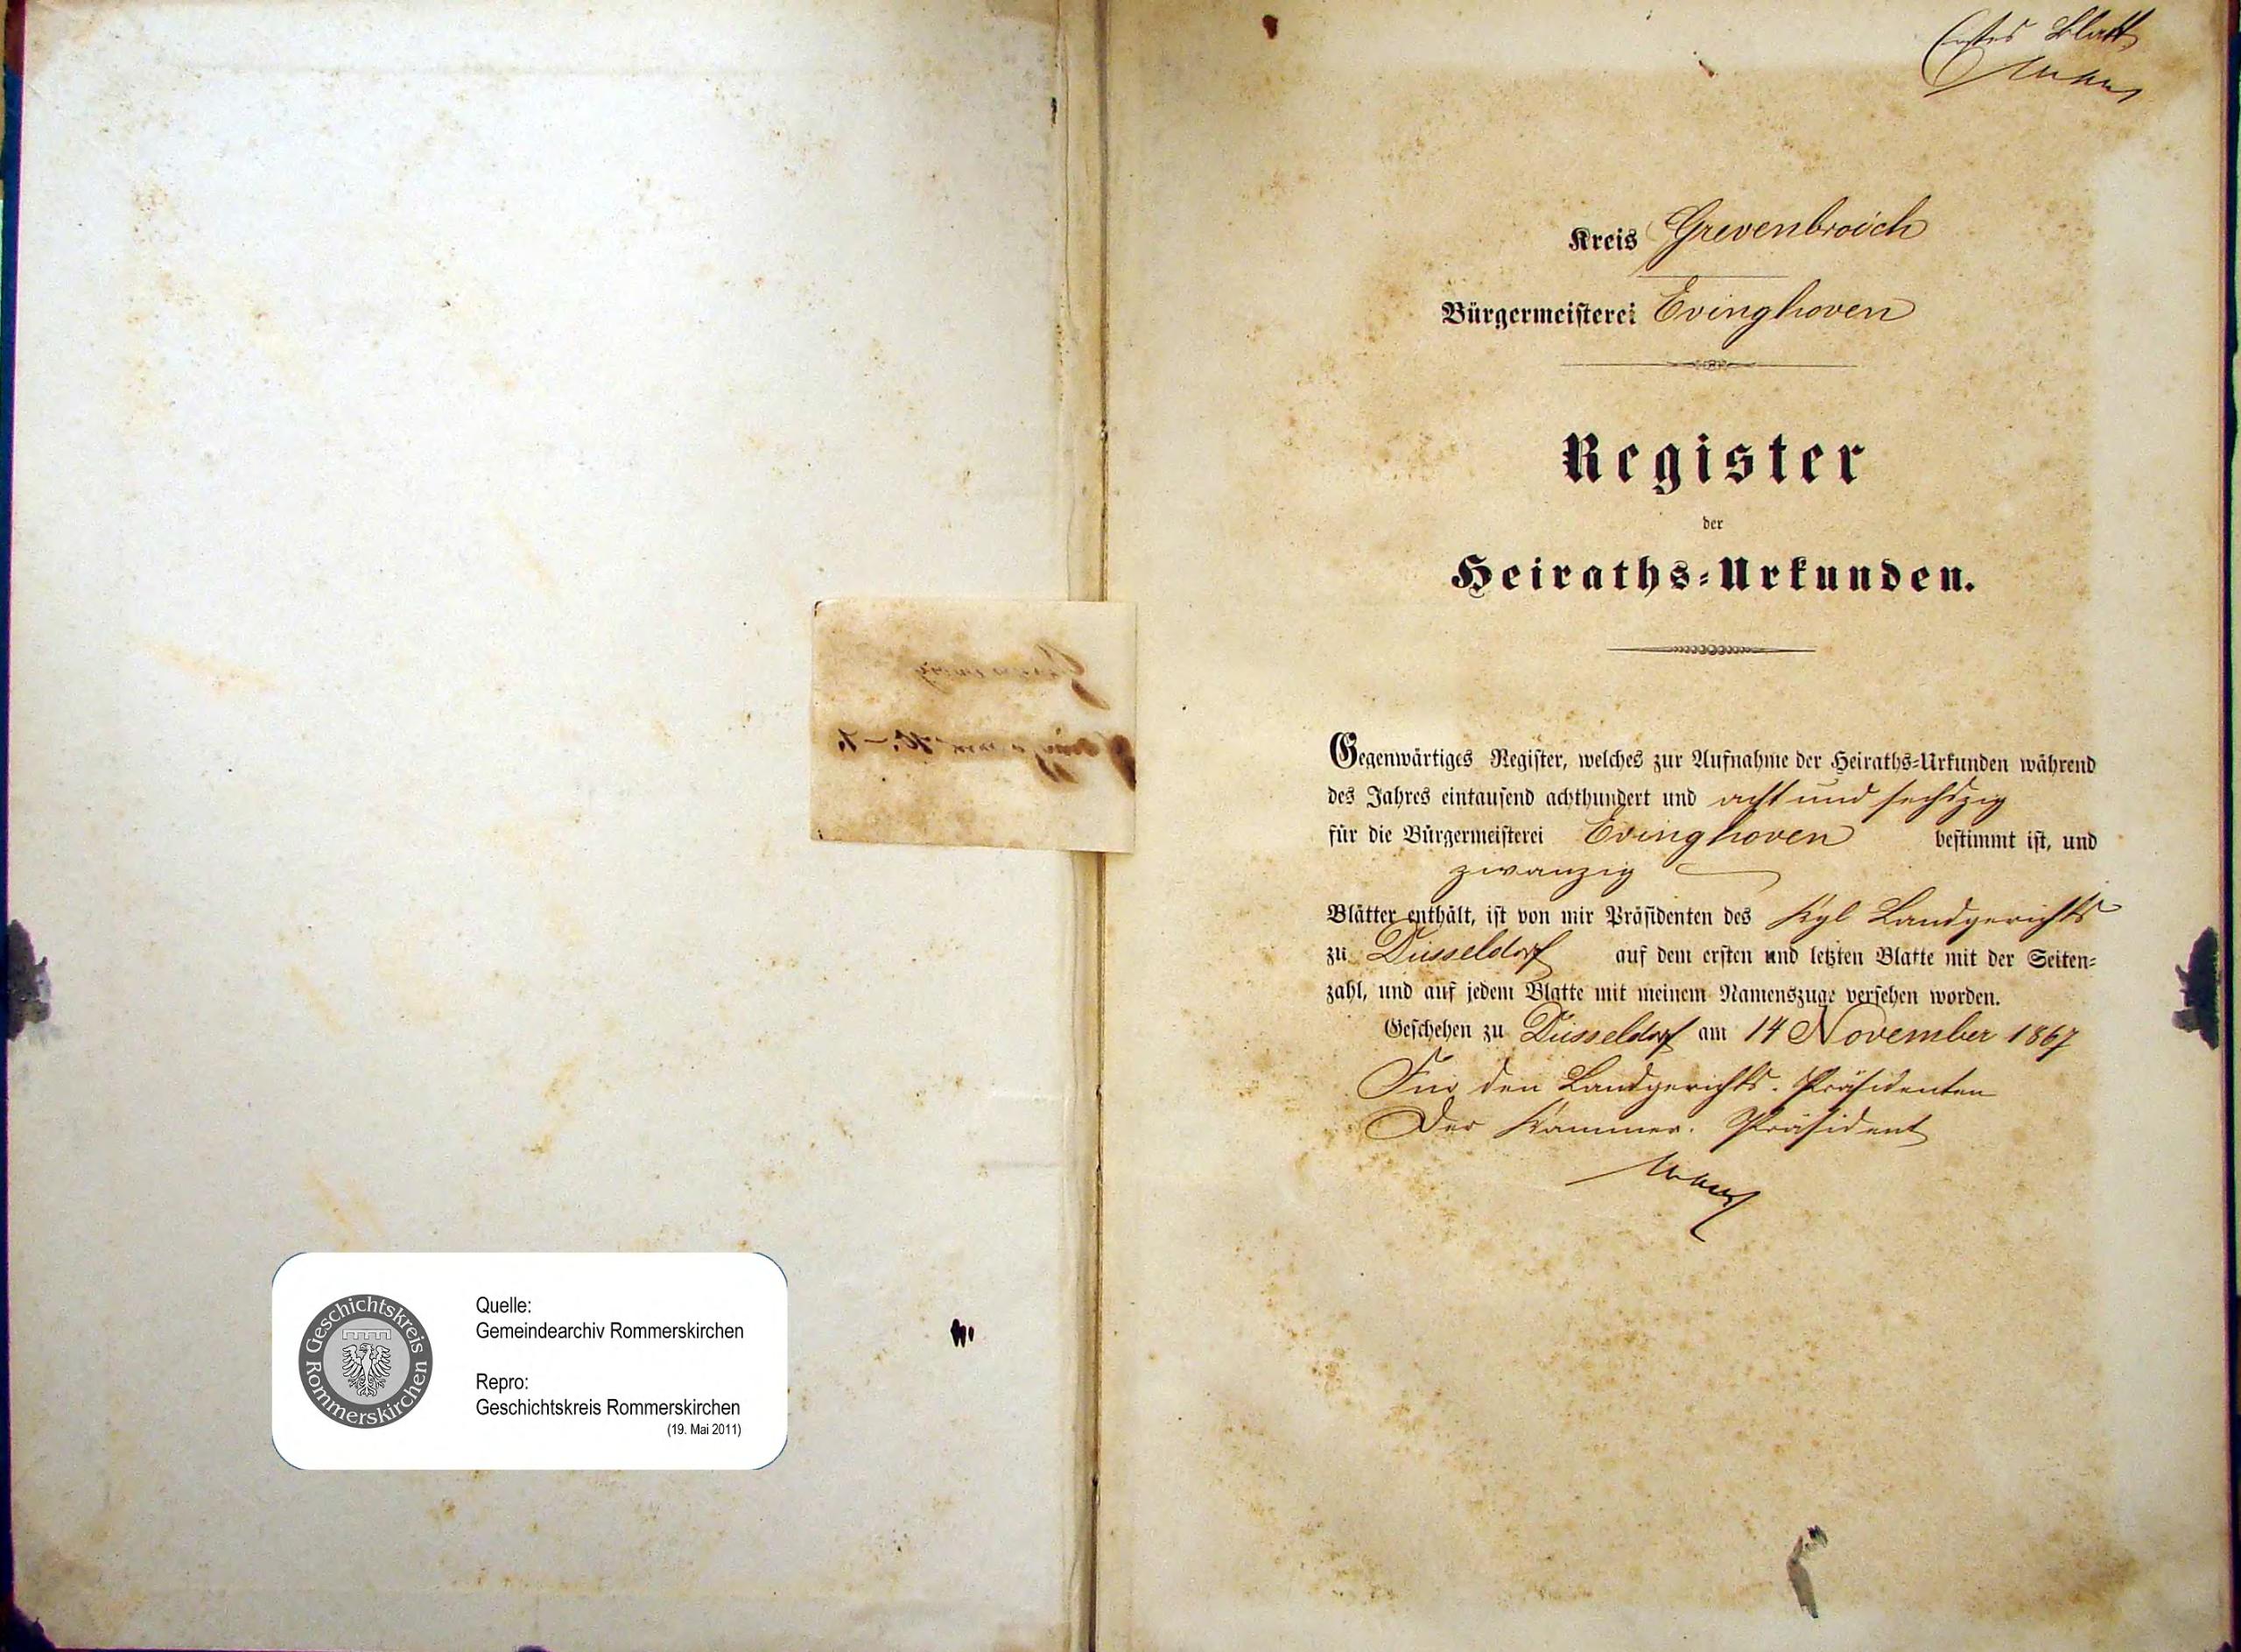 Geschichtskreis
Rommerskirchen
Quelle:
Gemeindearchiv Rommerskirchen
Repro:
Geschichtskreis Rommerskirchen
(19. Mai 2011)
Erstes Blatt
Kreis Grevenbroich
Bürgermeisterei Evinghoven
Register
der
Heiraths-Urkunden.
Gegenwärtiges Register, welches zur Aufnahme der Heiraths-Urkunden während
des Jahres eintausend achthundert und acht und sechszig
für die Bürgermeisterei Evinghoven bestimmt ist, und
zwanzig
Blätter enthält, ist von mir Präsidenten des Kgl Landgerichts
zu Düsseldorf auf dem ersten und letzten Blatte mit der Seiten-
zahl, und auf jedem Blatte mit meinem Namenszuge versehen worden.
Geschehen zu Düsseldorf am 14 November 1867
Für den Landgerichts-Präsidenten
Der Kammer-Präsident